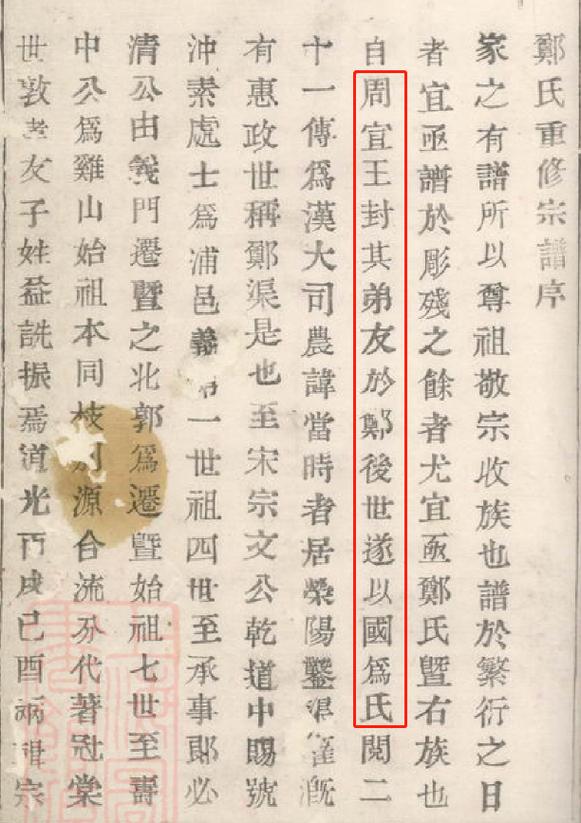 鄭氏重修宗譜序
家之有譜所以尊祖敬宗收族也譜於繁衍之日
者宜亟譜於彫殘之餘者尤宜亟鄭氏暨右族也
自周宣王封其弟友於鄭後世遂以國為氏閱二
十一傳為漢大司農諱當時者居滎陽鑿渠灌溉
有惠政世稱鄭渠是也至宋宗文公乾道中賜號
沖素處士為浦邑義一世祖四世至承事郎必
清公由義門遷暨之北郭為遷暨始祖七世至壽
中公為雞山始祖本同枝別源合流分代著冠棠
世敦孝友子姓益詵振焉道光丙戌己酉兩涖宗